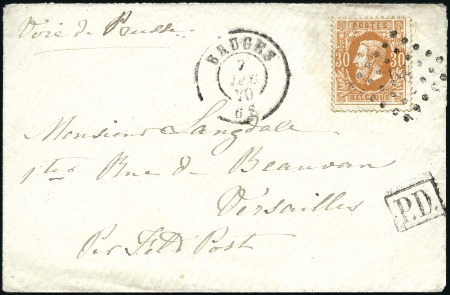 Voie de Prusse
BRUGES
7
DEC
70
6 S
30 30
BELGIQUE
Monsieur Langdale
1 ter Rue de Beauvau
Versailles
Per Feld Post
P.D.